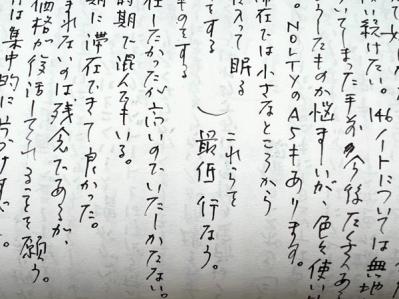 い続けたい。146ノートについては無地
てしまった手前
たものか悩ましいが、色を使い
。NOLTYのA5もあります。
在では小さなところから
入って眠る
これらを
最低行なう。
をする
ものをする
在したかったが高いのでいたしかたない。
期で混んでもいる。
期に滞在できて良かった。
まれないのは残念であるが、
価格が復活してくれることを願う。
は集中的に片づけ